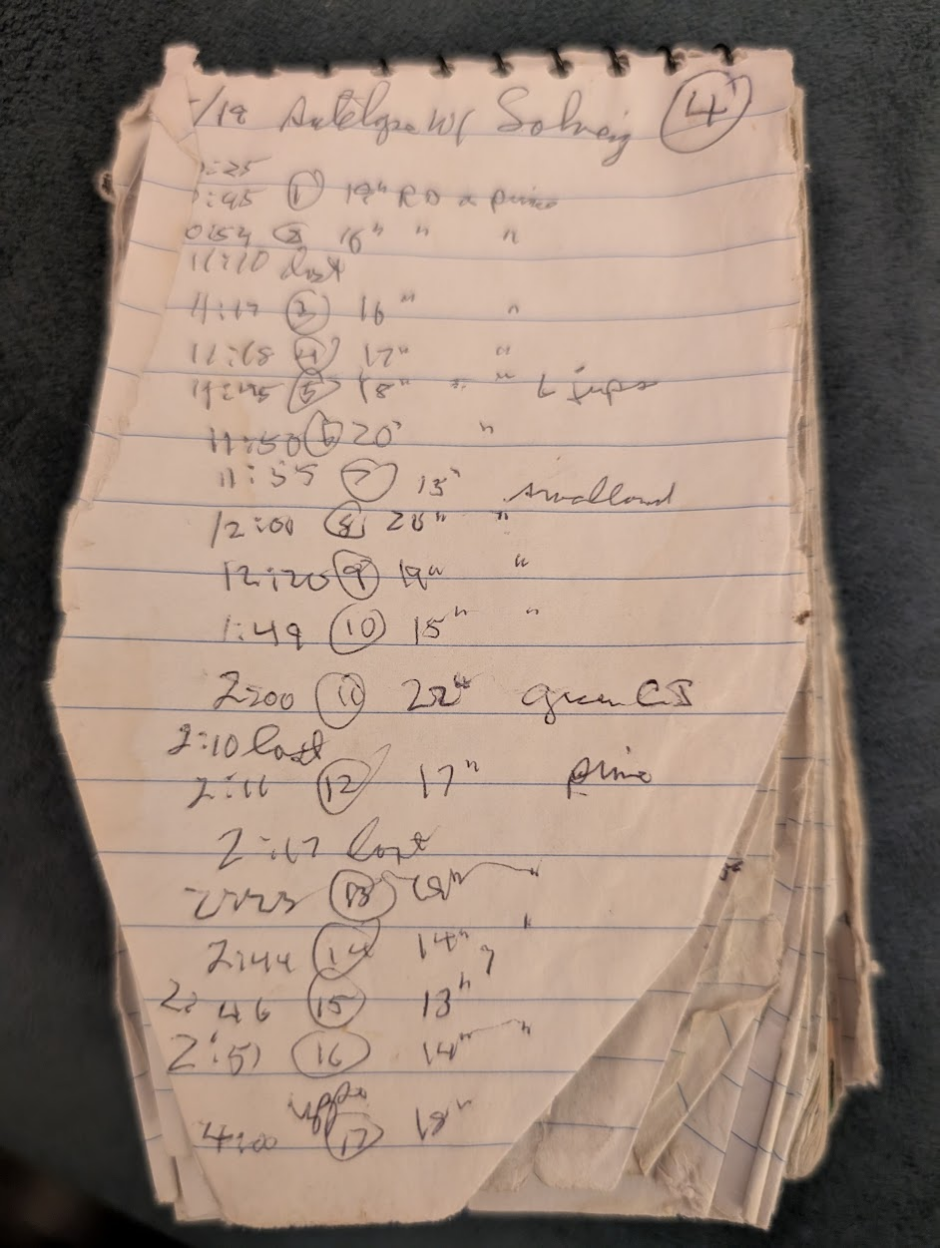 /18 Antelope w/ Solveig 4
:25
:45 1 19" RD a primo
0:54 2 16" " "
11:10 lost
11:17 3 16" "
11:18 4 17" "
11:45 5 18" " " L jups
11:50 6 20" "
11:55 7 15" smalland
12:00 8 20" "
12:20 9 19" "
1:49 10 15" "
2:00 11 22" green CJ
2:10 lost
2:11 12 17" primo
2:17 lost
2:23 13 "
2:44 14 14" "
2:46 15 13"
2:51 16 14" "
4:00 17 18"